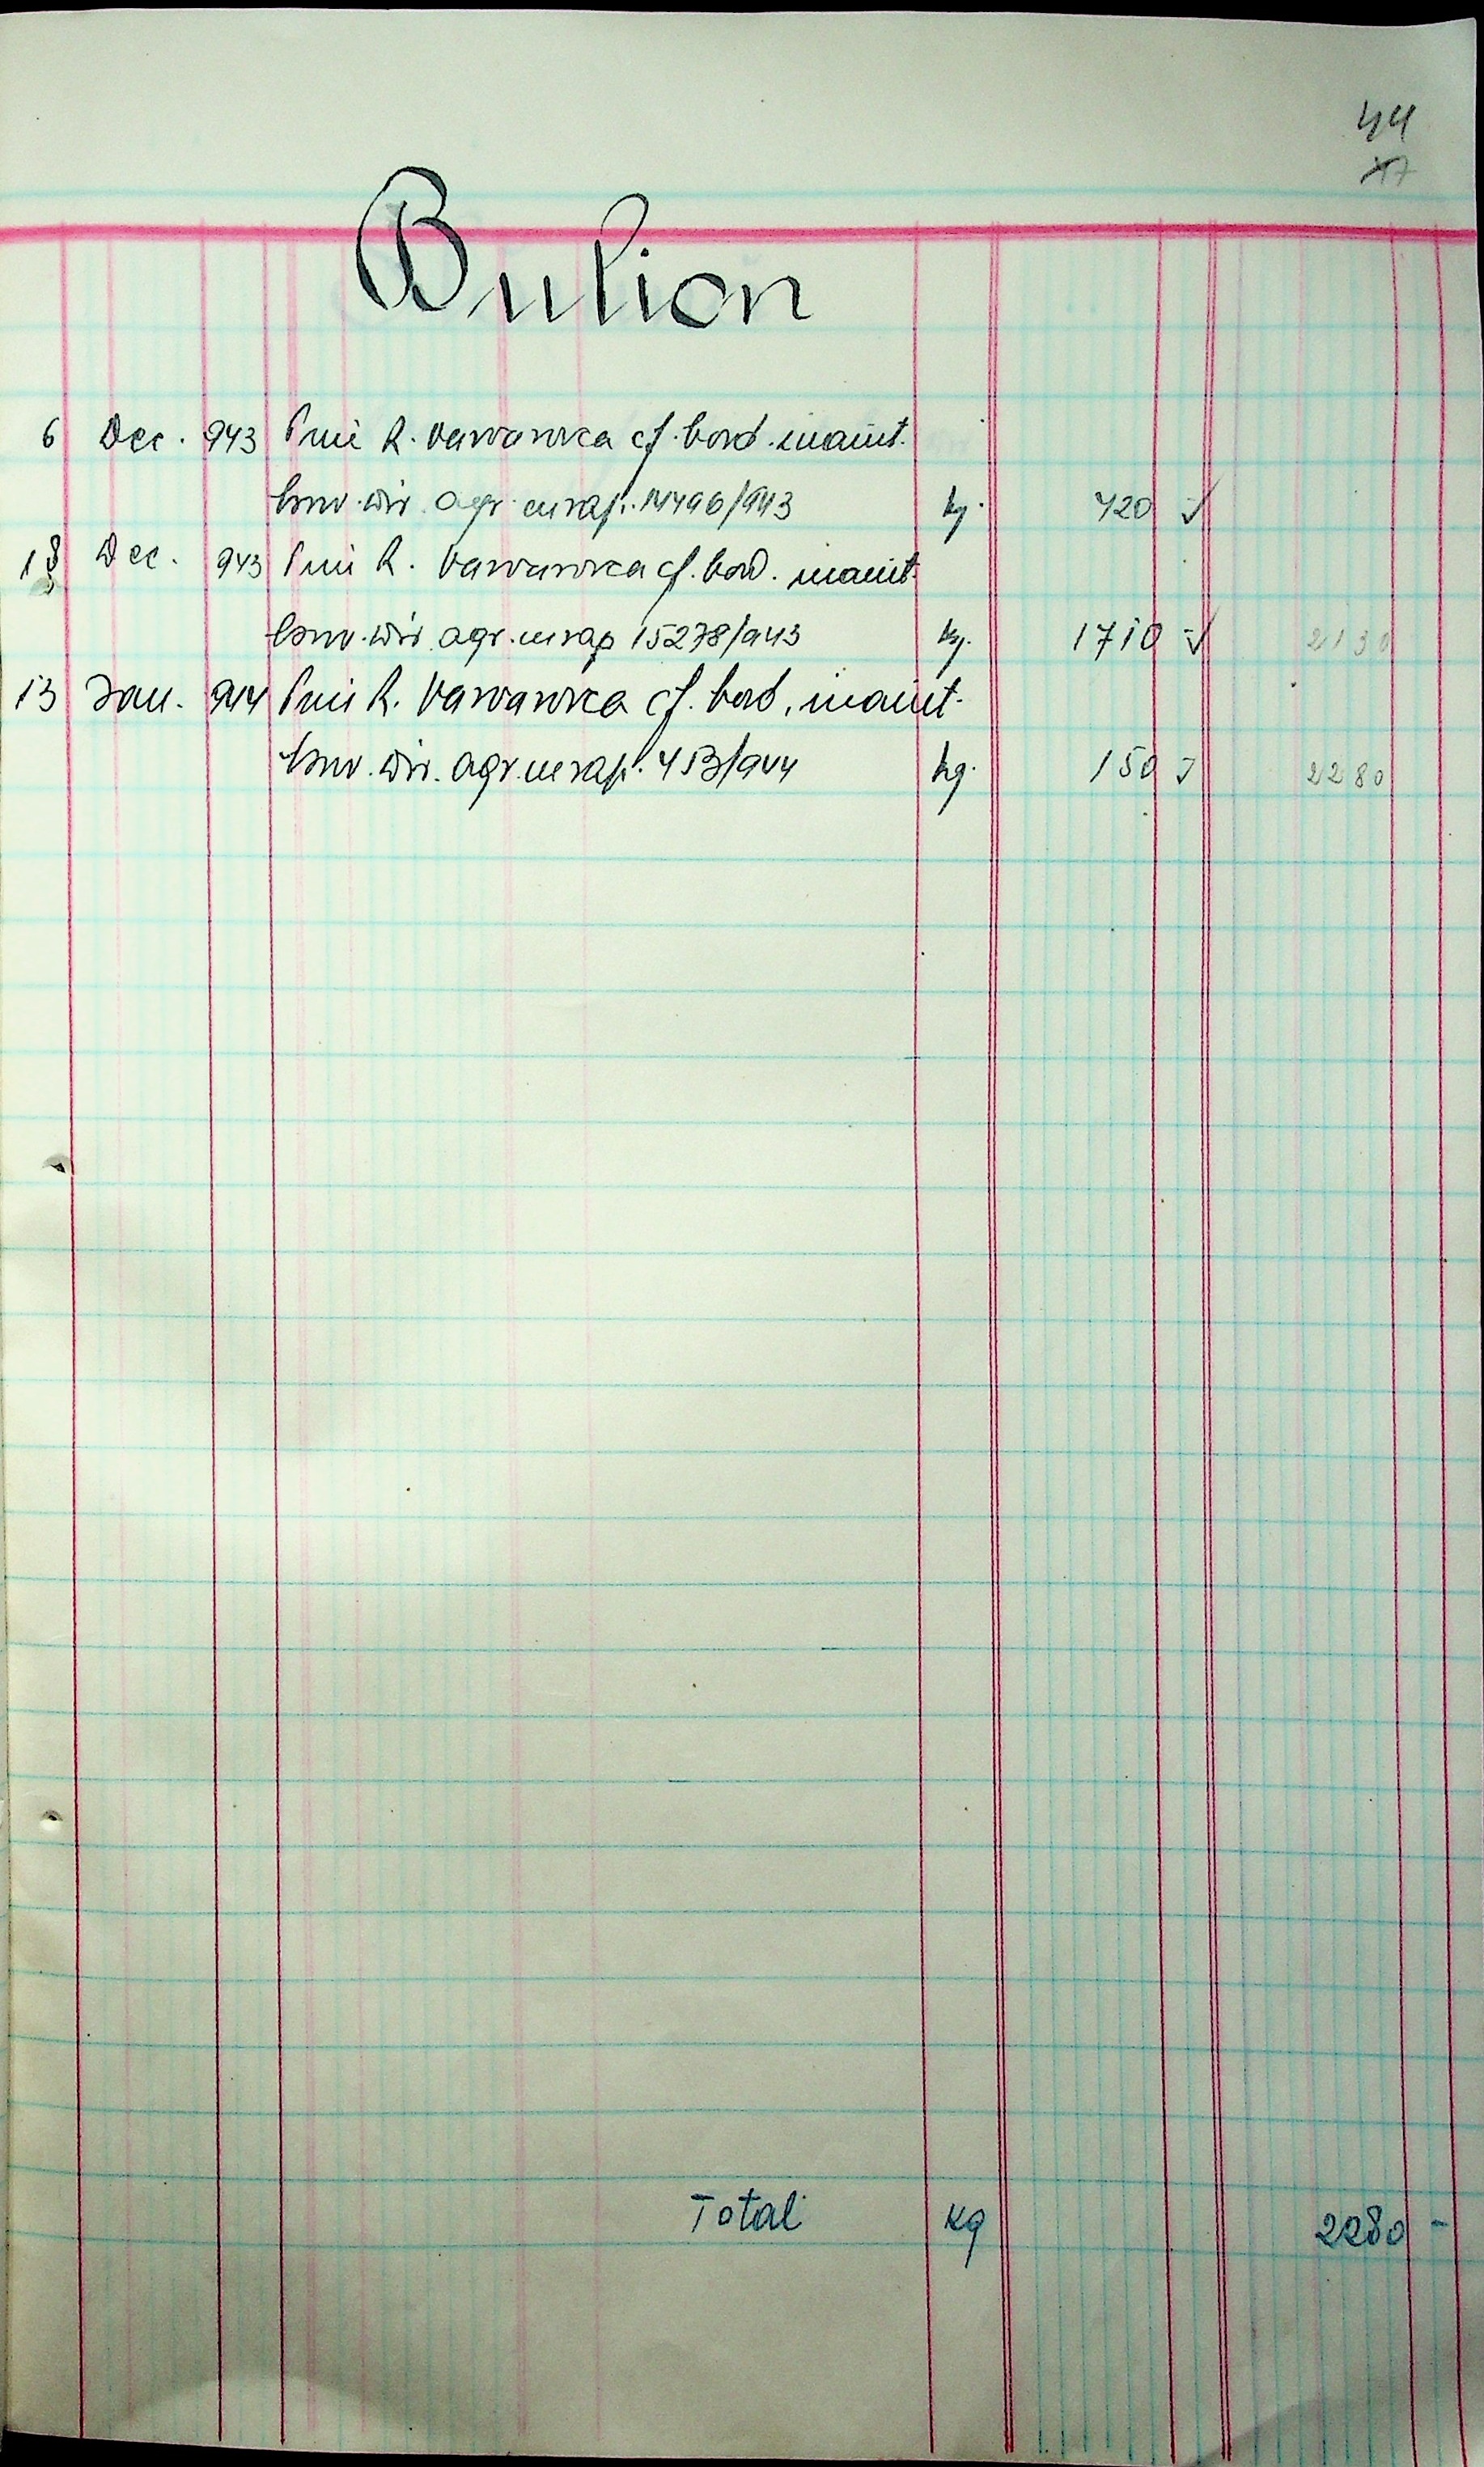 44
17
Bulion
6 Dec. 943 Prin R. Varvarovca cf. bord. inaint.
Guv. Dir. agr. cu rap. 14496/943 kg. 420
18 Dec. 943 Prin R. Varvarovca cf. bord. inaint.
Guv. Dir. agr. cu rap 15278/943 kg. 1710 2130
13 Jan. 944 Prin R. Varvarovca cf. bord. inaint.
Guv. Dir. agr. cu rap. 453/944 kg. 150 2280
Total kg 2280 -